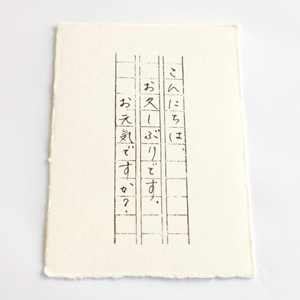 こんにちは、
お久しぶりです。
お元気ですか？